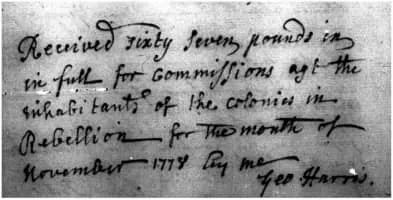 Received sixty seven pounds in
in full for Commissions agt the
inhabitants of the colonies in
Rebellion for the month of
November 1778 by me
Geo Harris.